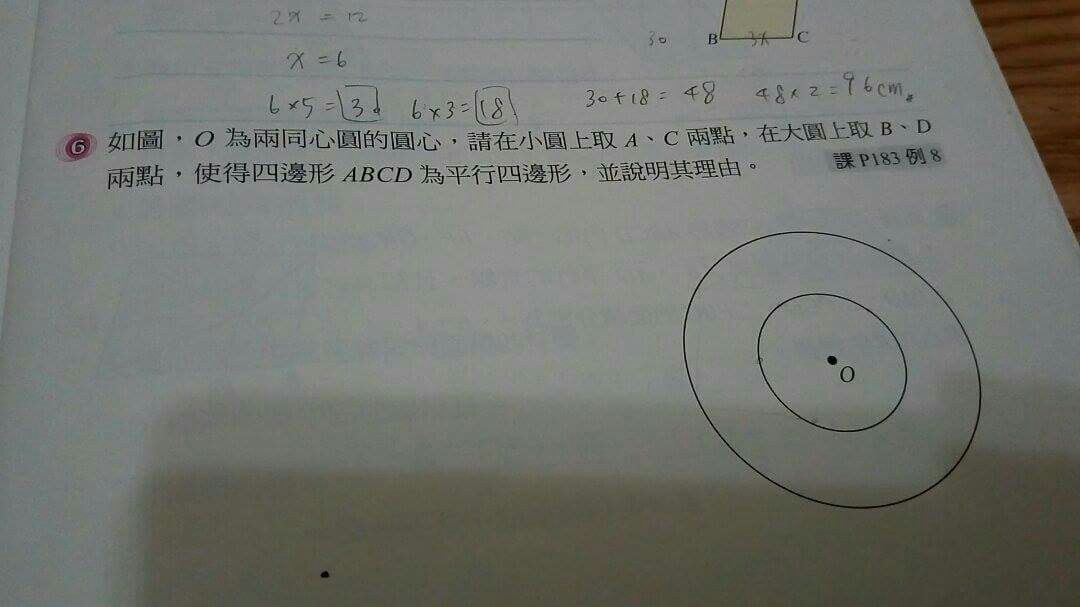 2x = 12
30 B 3x C
x = 6
6×5=30 6×3=18 30+18=48 48×2=96cm。
6 如圖，O 為兩同心圓的圓心，請在小圓上取 A、C 兩點，在大圓上取 B、D
兩點，使得四邊形 ABCD 為平行四邊形，並說明其理由。 課P183例8
O